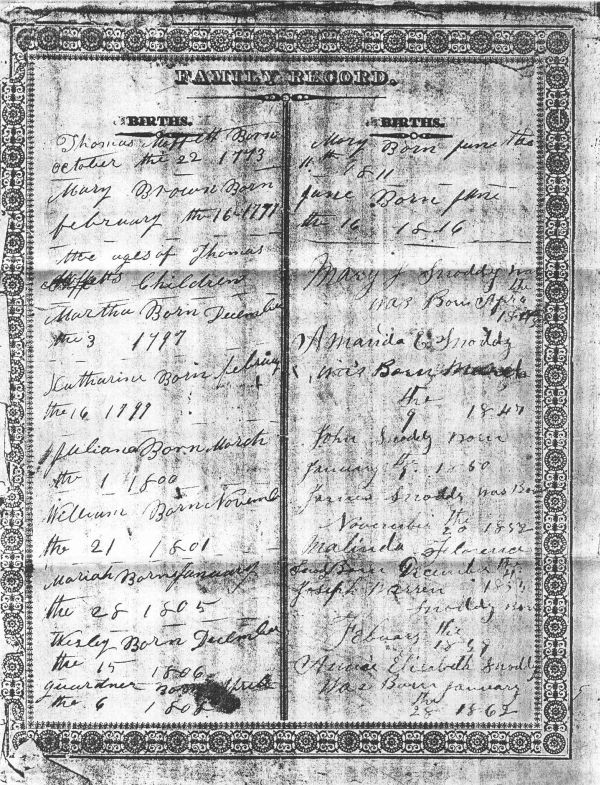 FAMILY RECORD.
BIRTHS.
Thomas Born
October the 22 1773
Mary Brown Born
february the 16 1777
the ages of Thomas
Children
Martha Born December
the 3 1797
Katharine Born februy
the 16 1799
Juliana Born March
the 1 1800
William Born Novemb
the 21 1801
Mariah Born January
the 28 1805
Wesley Born December
the 15 1806
guardner Born
the 6
BIRTHS.
Mary Born June the
11th 1811
Jane Born June
the 16 1816
Mary J Snoddy
was Born Apr the
Amanda E Snoddy
was Born March
the
9 1847
John Snoddy born
January 1850
James Snoddy was Bor
November the
20 1852
Malinda Florence
Born December
Joseph Warren
Snoddy
Febuary the
Annie Elizabeth Snoddy
was Born January
the
28 1862